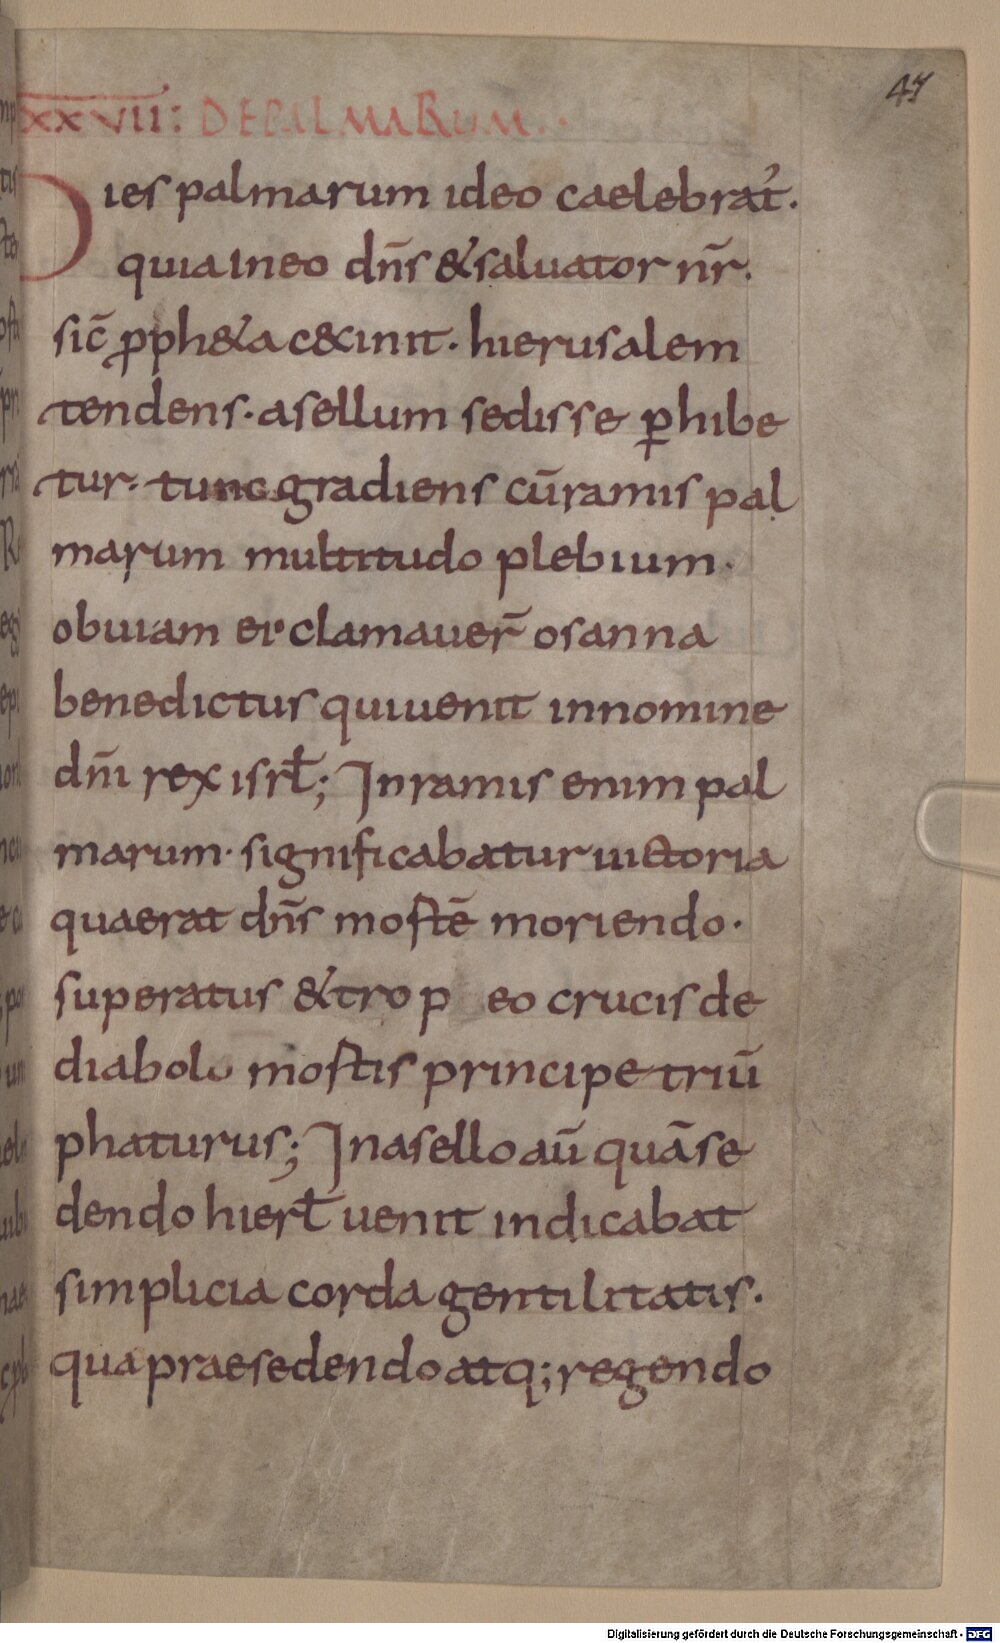 47
XXVII: DE PALMARUM.
Dies palmarum ideo caelebrat̓.
quia in eo dn̄s & saluator nr̄.
sic̄ ꝓph&a c&init. hierusalem
tendens. asellum sedisse ꝑhibe
tur. tunc gradiens cū ramis pal
marum multitudo plebium.
obuiam ei clamauer̄ osanna
benedictus qui uenit in nomine
dn̄i rex isrł; In ramis enim pal
marum. significabatur uictoria
qua erat dn̄s mostē moriendo.
superatus & trop eo crucis de
diabolo mostis principe triū
phaturus; In asello aū quā se
dendo hierł uenit indicabat
simplicia corda gentilitatis.
qua praesedendo atq; regendo
Digitalisierung gefördert durch die Deutsche Forschungsgemeinschaft - DFG